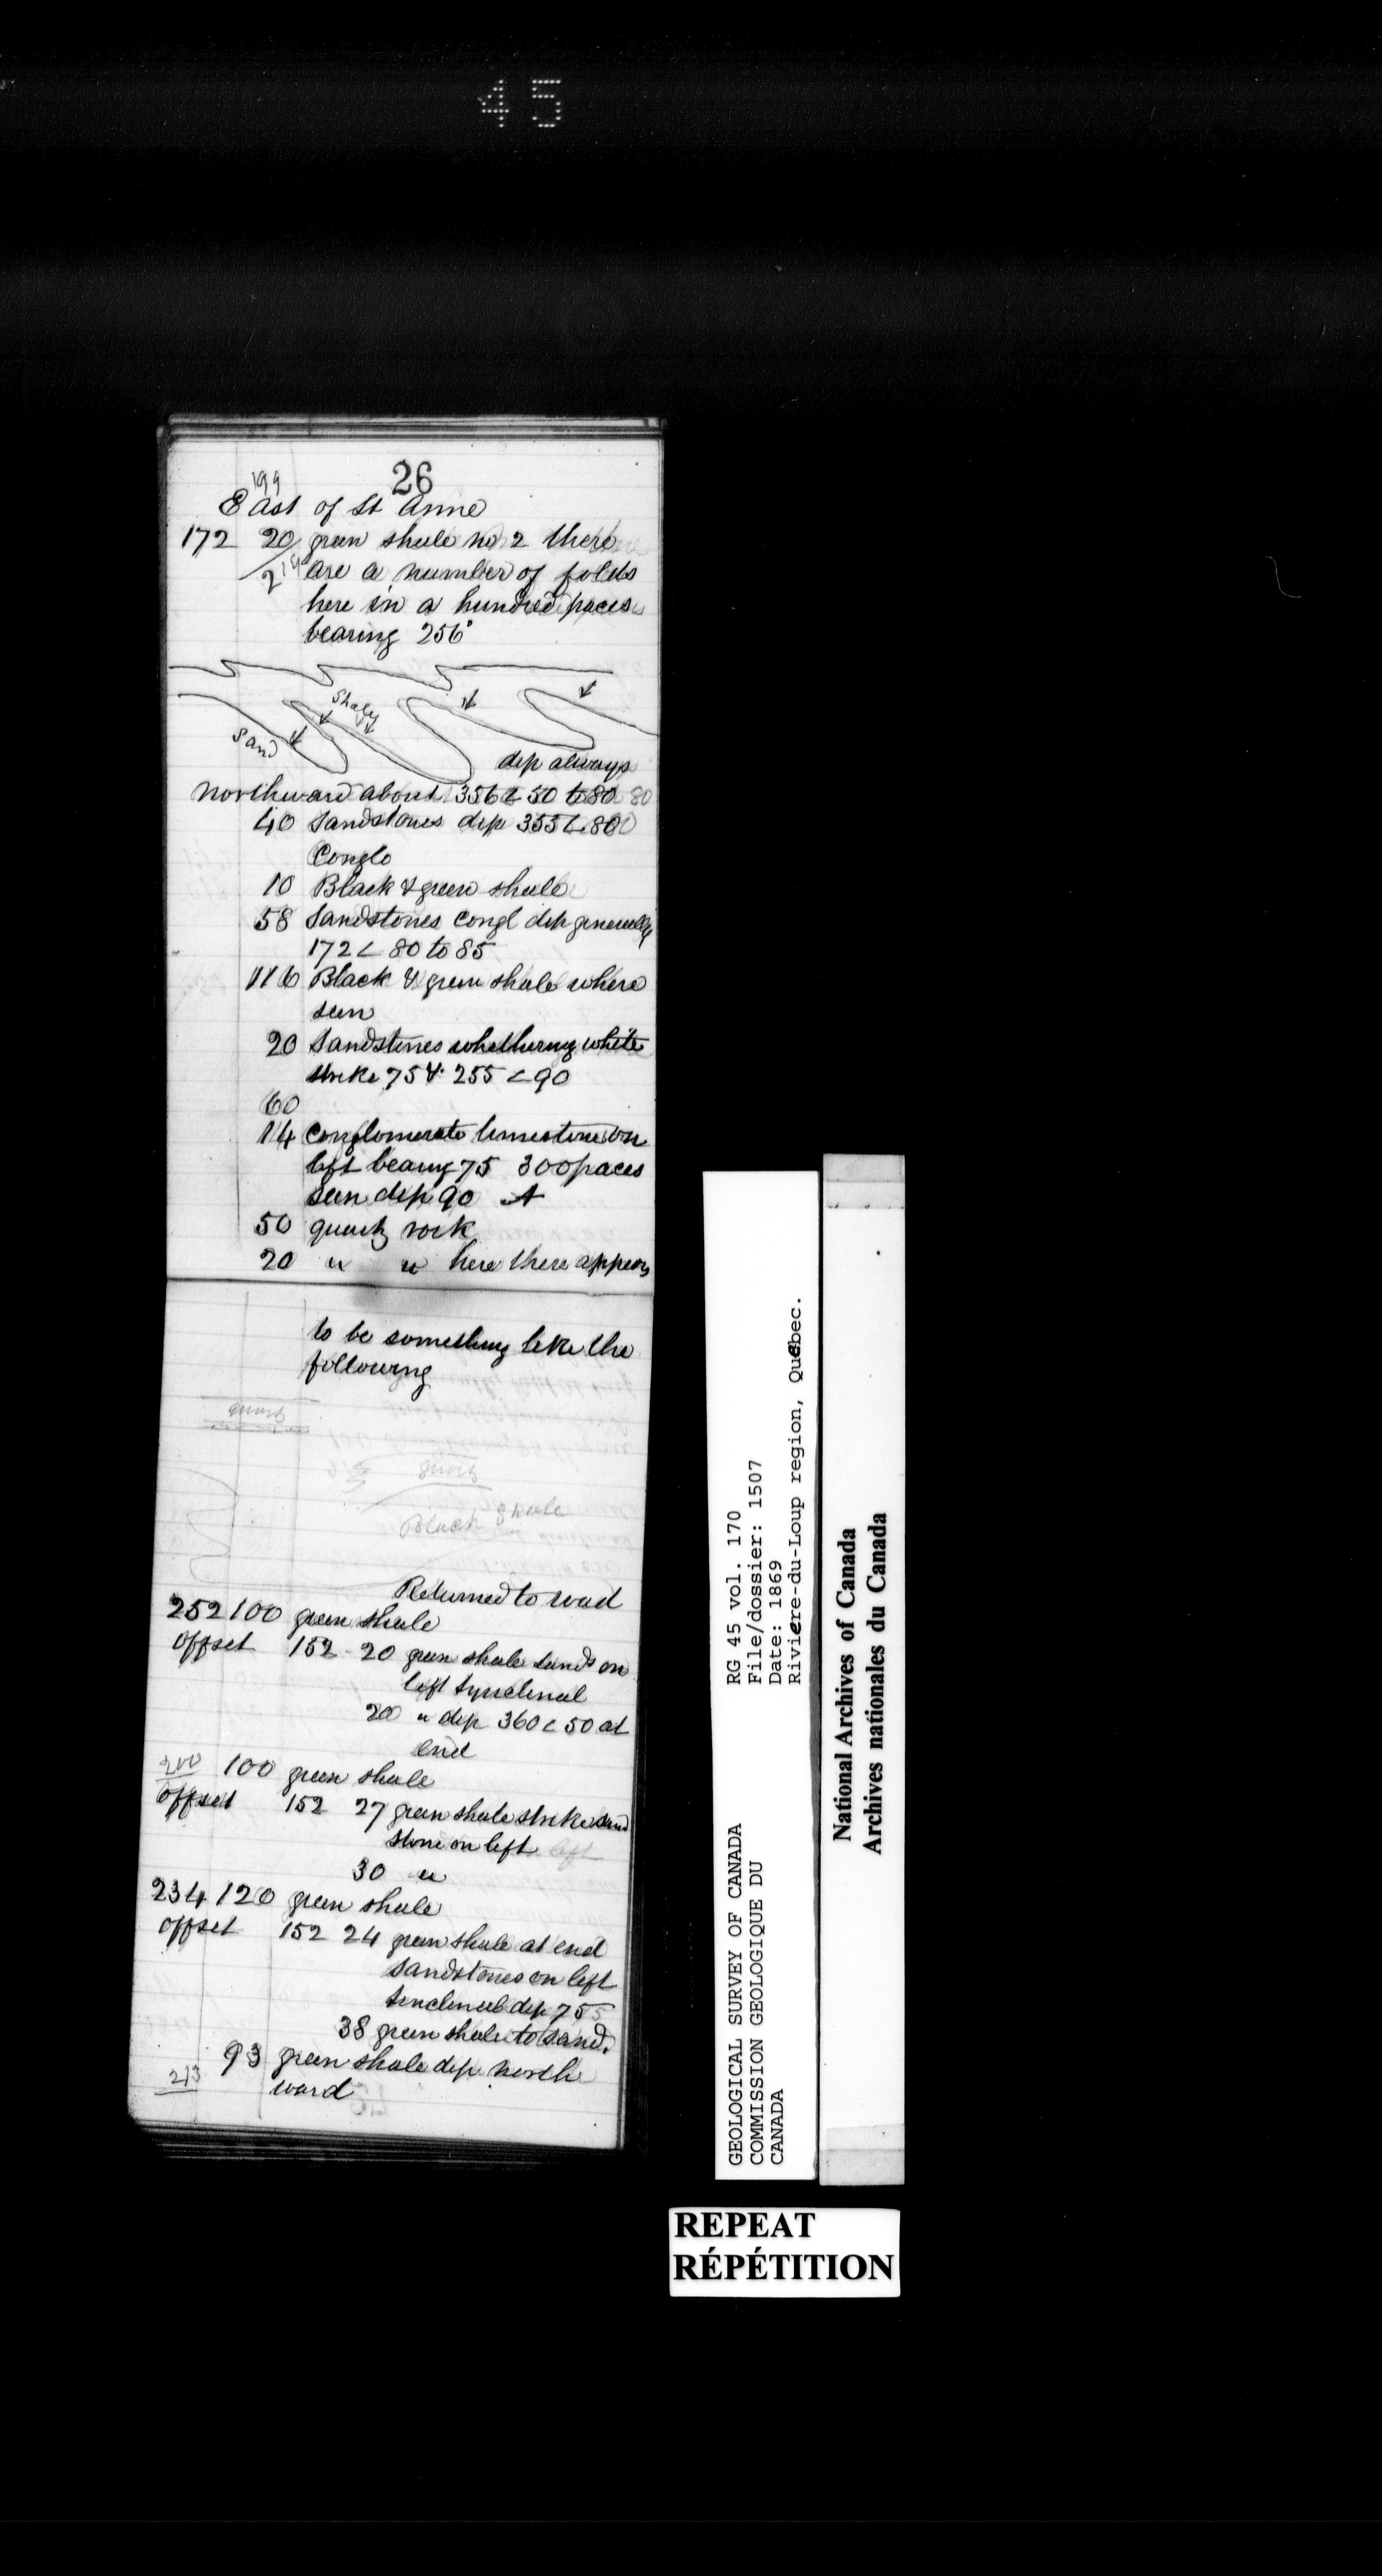 45
26
199
East of St Anne
172 20 green shale no 2 there
219 are a number of folds
here in a hundred paces
bearing 256°
Shaly
Sand
dip always
northward about 356 < 50 to 80
40 Sandstones dip 355 < 80
Conglo
10 Black & green shale
58 Sandstones Congl dip generally
172 < 80 to 85
116 Black & green shale where
seen
20 Sandstones whethering white
strike 75 & 255 < 90
60
14 Conglomerate limestone on
left bearing 75 300 paces
seen dip 90 A
50 quartz rock
20 " " here there appears
to be something like the
following
quartz
quartz
Black Shale
Returned to road
252 100 green shale
offset 152 20 green shale sands on
left synclinal
20 " dip 360 < 50 at
end
200 100 green shale
offset 152 27 green shale strike sand
stone on left
30 "
234 120 green shale
offset 152 24 green shale at end
Sandstones on left
sinclinal dip 75
38 green shale to sand.
93 green shale dip north
213 ward
GEOLOGICAL SURVEY OF CANADA
COMMISSION GEOLOGIQUE DU
CANADA
RG 45 vol. 170
File/dossier: 1507
Date: 1869
Rivière-du-Loup region, Québec.
National Archives of Canada
Archives nationales du Canada
REPEAT
RÉPÉTITION